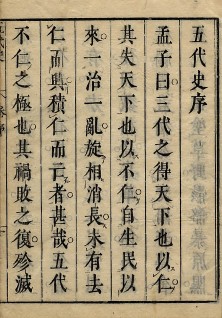 五代史序
孟子曰三代之得天下也以仁
其失天下也以不仁自生民以
來一治一亂旋相消長未有去
仁而興積仁而亡者甚哉五代
不仁之極也其禍敗之復殄滅